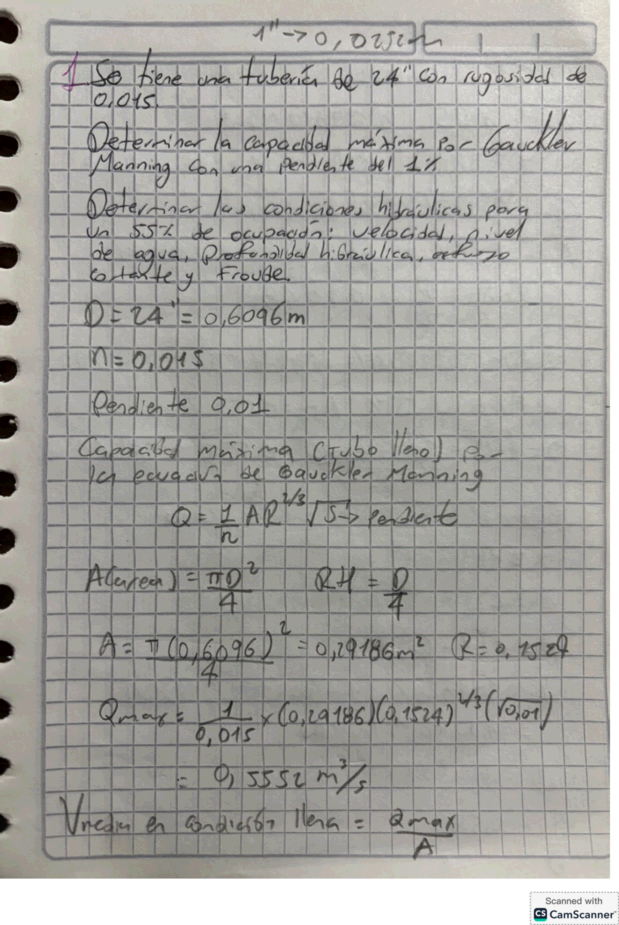 1" → 0,0254m
1 Se tiene una tubería de 24" con rugosidad de
0,015.
Determinar la capacidad máxima por Gauckler
Manning con una pendiente del 1%
Determinar las condiciones hidráulicas para
un 55% de ocupación: velocidad, nivel
de agua, profundidad hidráulica, esfuerzo
cortante y Froude.
D = 24" = 0,6096m
n = 0,015
Pendiente 0,01
Capacidad máxima (Tubo lleno) por
la ecuación de Gauckler Manning
Q = 1/n AR^2/3 √S → Pendiente
A(area) = πD²/4 RH = D/4
A = π(0,6096)²/4 = 0,29186m² R = 0,1524
Qmax = 1/0,015 × (0,29186)(0,1524)^2/3 (√0,01)
= 0,5552 m³/s
Vmedia en condición llena = Qmax/A
Scanned with
CS CamScanner